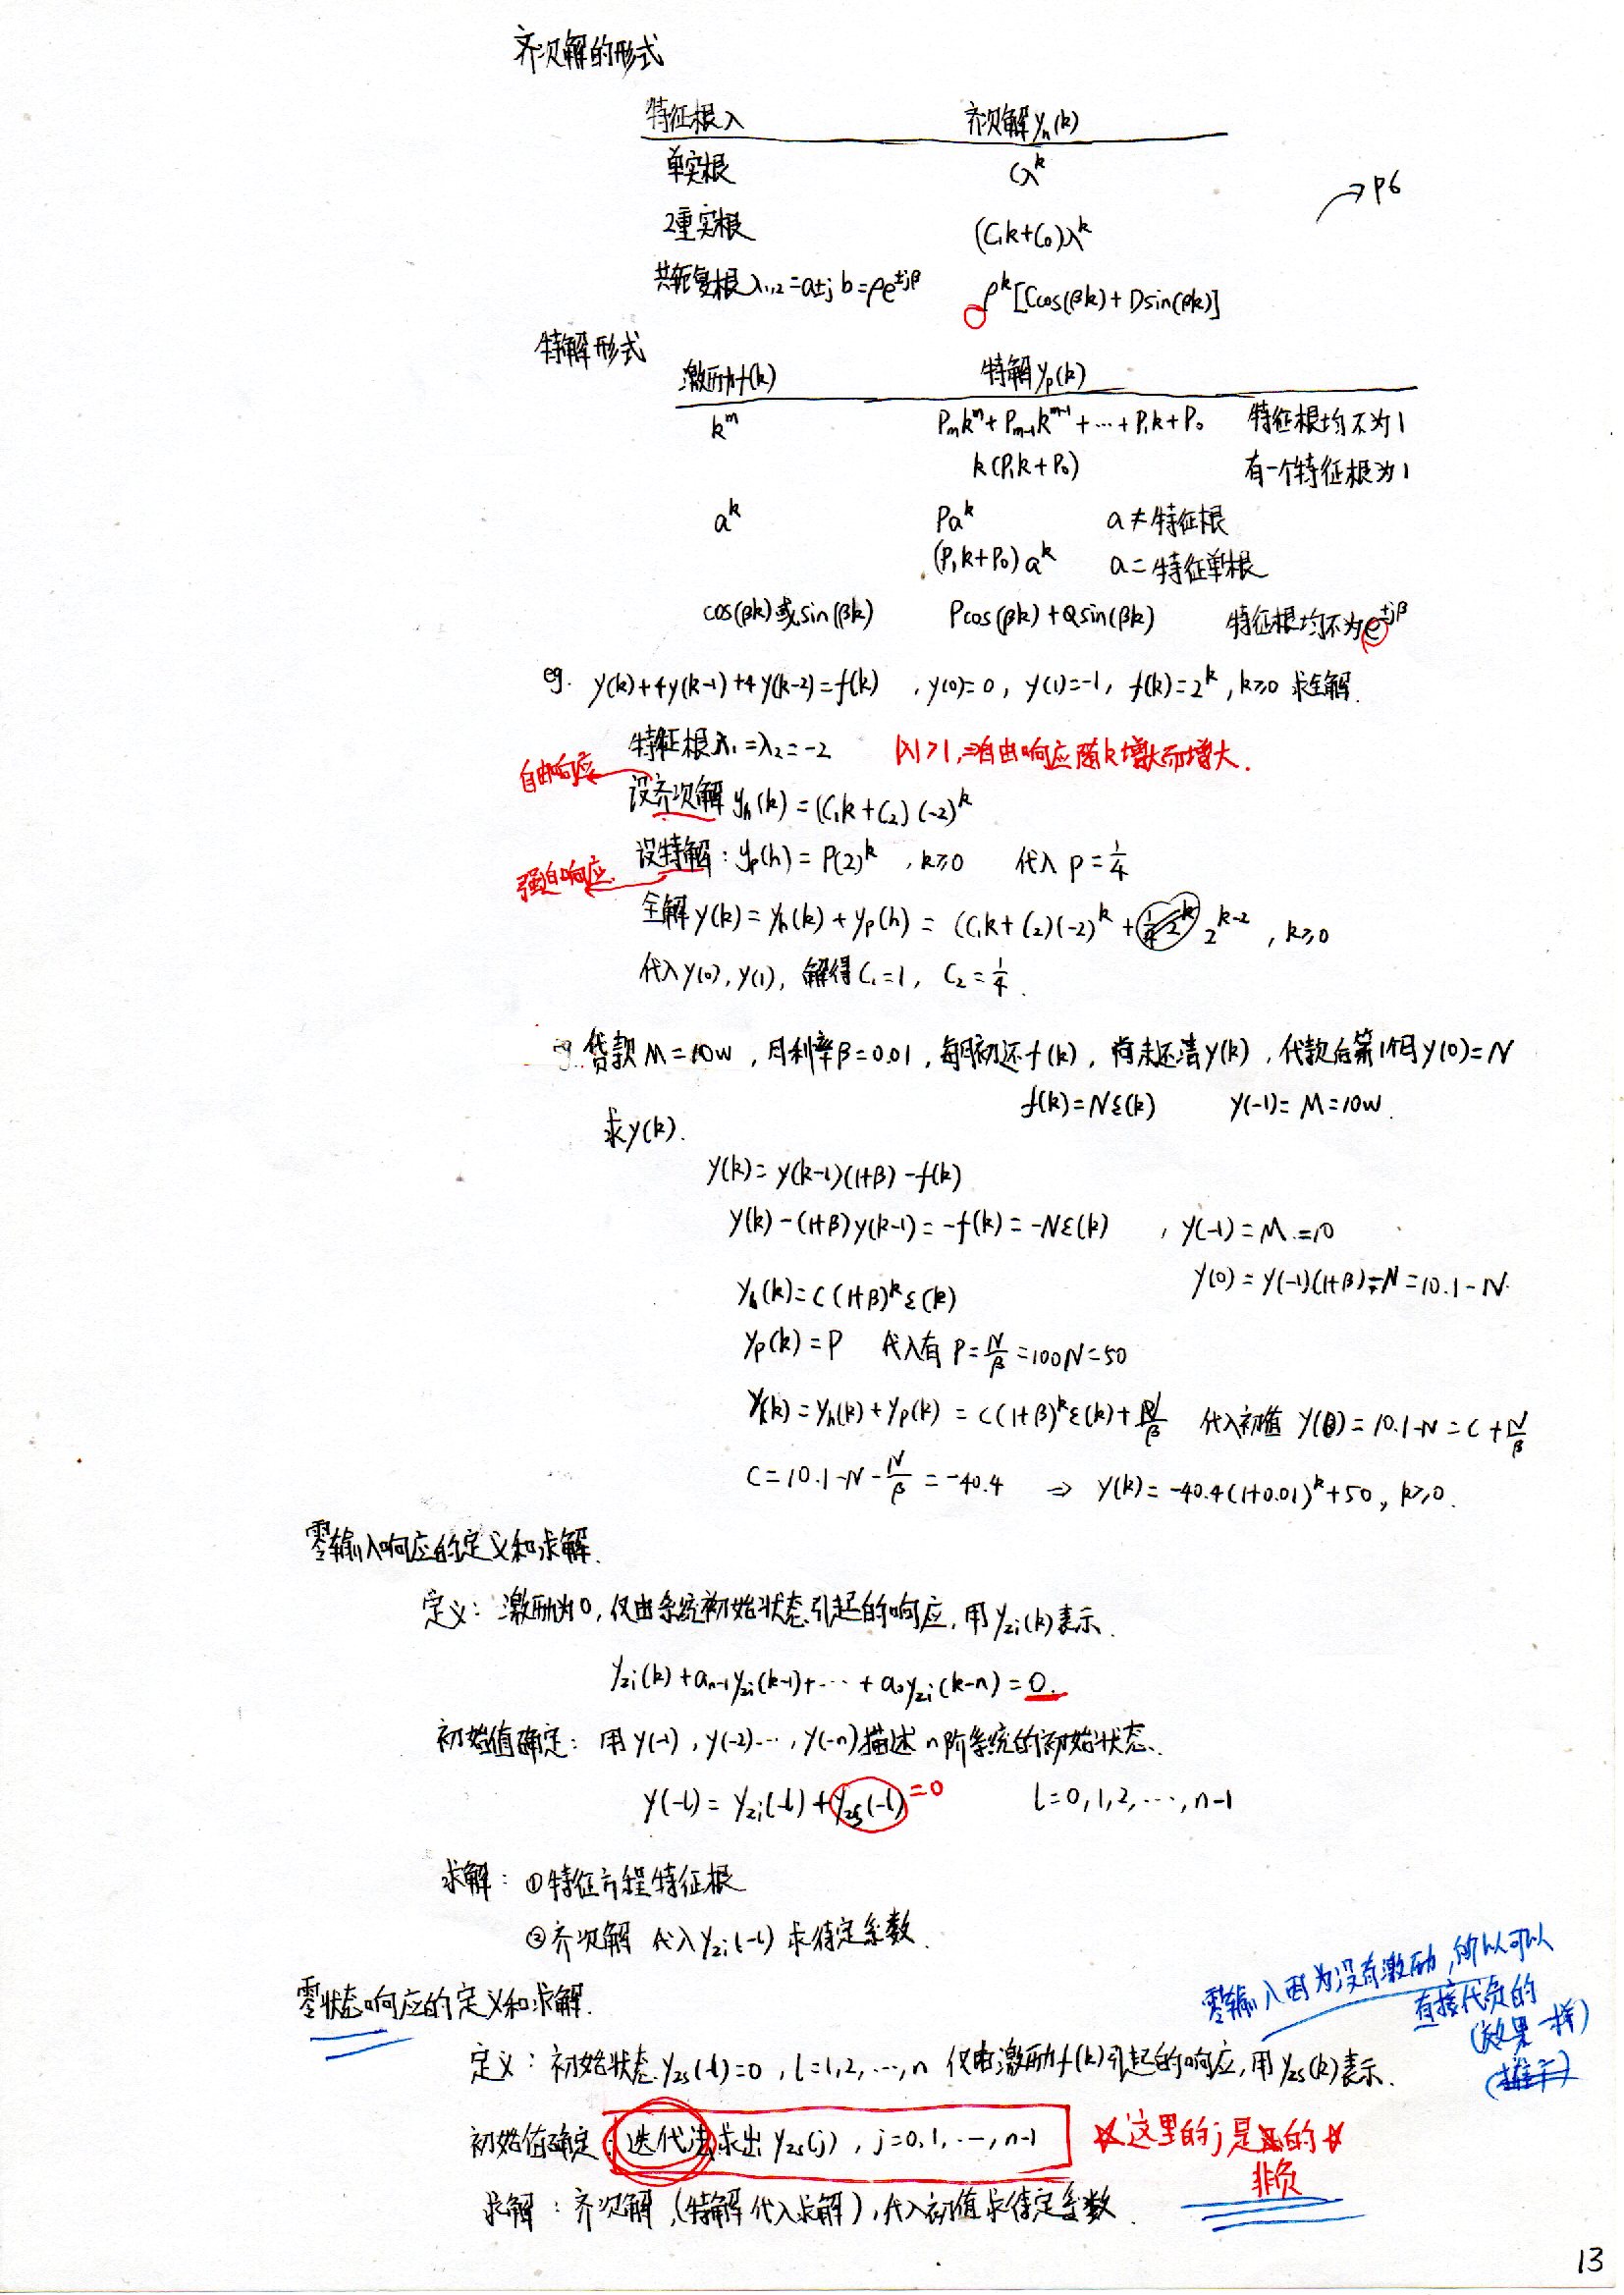 齐次解的形式
特征根λ 齐次解yₕ(k)
单实根 Cλ^k
→P6
2重实根 (C₁k+C₀)λ^k
共轭复根λ₁,₂=a±jb=ρe^{±jβ} ρ^k[Ccos(βk)+Dsin(βk)]
特解形式
激励f(k) 特解yₚ(k)
k^m Pₘk^m+Pₘ₋₁k^{m-1}+…+P₁k+P₀ 特征根均不为1
k(P₁k+P₀) 有一个特征根为1
a^k Pa^k a≠特征根
(P₁k+P₀)a^k a=特征单根
cos(βk)或sin(βk) Pcos(βk)+Qsin(βk) 特征根均不为e^{±jβ}
eg. y(k)+4y(k-1)+4y(k-2)=f(k) , y(0)=0, y(1)=-1, f(k)=2^k, k≥0 求全解.
特征根λ₁=λ₂=-2 |λ|>1,⇒自由响应随k增大而增大.
自由响应
设齐次解yₕ(k)=(C₁k+C₂)(-2)^k
设特解:yₚ(k)=P(2)^k , k≥0 代入P=1/4
强迫响应
全解y(k)=yₕ(k)+yₚ(k)=(C₁k+C₂)(-2)^k+2^{k-2} , k≥0
代入y(0),y(1), 解得C₁=1, C₂=1/4.
贷款M=10w , 月利率β=0.01, 每月初还f(k), 尚未还清y(k), 代款后第1个月y(0)=N
f(k)=Nε(k) y(-1)=M=10w.
求y(k).
y(k)=y(k-1)(1+β)-f(k)
y(k)-(1+β)y(k-1)=-f(k)=-Nε(k) , y(-1)=M=10
y(0)=y(-1)(1+β)-N=10.1-N.
yₕ(k)=C(1+β)^kε(k)
yₚ(k)=P 代入有P=N/β=100N=50
y(k)=yₕ(k)+yₚ(k)=C(1+β)^kε(k)+N/β 代入初值 y(0)=10.1-N=C+N/β
C=10.1-N-N/β=-40.4 ⇒ y(k)=-40.4(1+0.01)^k+50, k≥0.
零输入响应的定义和求解.
定义: 激励为0, 仅由系统初始状态引起的响应, 用y_zi(k)表示.
y_zi(k)+aₙ₋₁y_zi(k-1)+…+a₀y_zi(k-n)=0.
初始值确定: 用y(-1), y(-2)…, y(-n)描述n阶系统的初始状态.
y(-l)=y_zi(-l)+y_zs(-l)=0 l=0,1,2,…,n-1
求解: ①特征方程特征根
②齐次解 代入y_zi(-l) 求待定系数.
零输入因为没有激励,所以可以
直接代负的
(效果一样)
零状态响应的定义和求解.
定义: 初始状态y_zs(-l)=0, l=1,2,…,n 仅由激励f(k)引起的响应, 用y_zs(k)表示.
初始值确定: 迭代法求出 y_zs(j), j=0,1,…,n-1 ☆这里的j是的☆
非负
求解: 齐次解,(特解代入求解), 代入初值求待定系数.
13